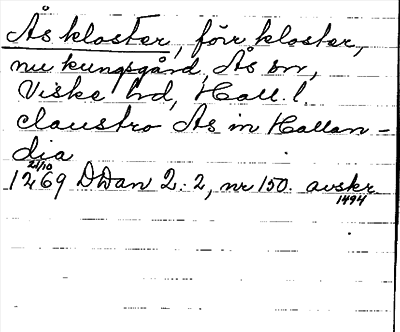 Ås kloster, förr kloster,
nu kungsgård, Ås sn,
Viske hd, Hall. l.
claustro As in Hallan-
dia
21/10
1269 DDan 2:2, nr 150. avskr.
1494